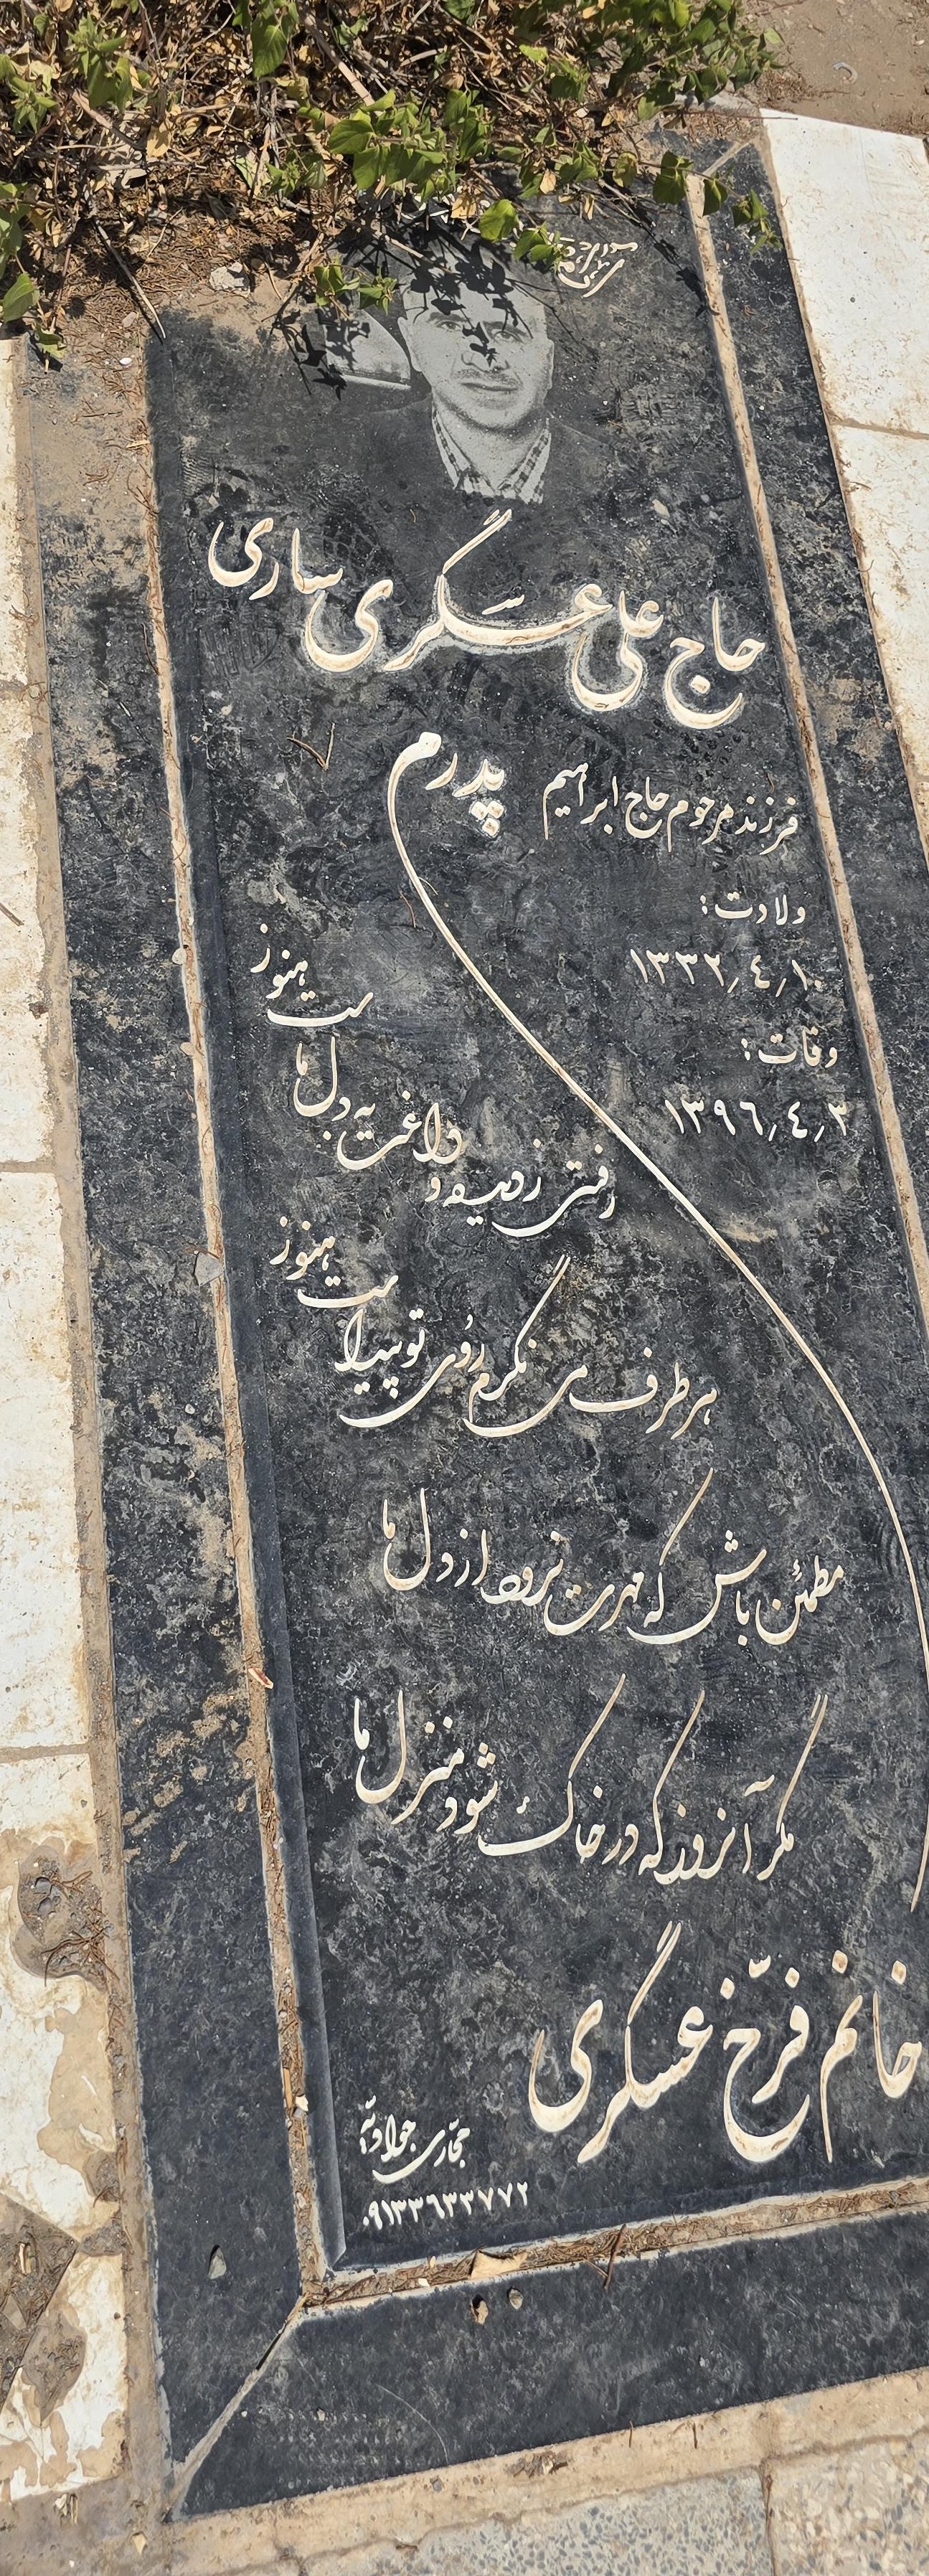 حاج علی عسکری ساری
فرزند مرحوم حاج ابراهیم
پدرم
ولادت:
۱۰٫٤٫۱۳۳۲
وفات:
۳٫٤٫۱۳۹٦
رفتی ز دیده و داغت به دل ماست هنوز
هر طرف می نگرم روی تو پیداست هنوز
مطمئن باش که مهرت نرود از دل ما
مگر آنروز که در خاک شود منزل ما
خانم فرّخ عسگری
حجّاری جوادیّه
۰۹۱۳۳٦۳۳۷۷۲